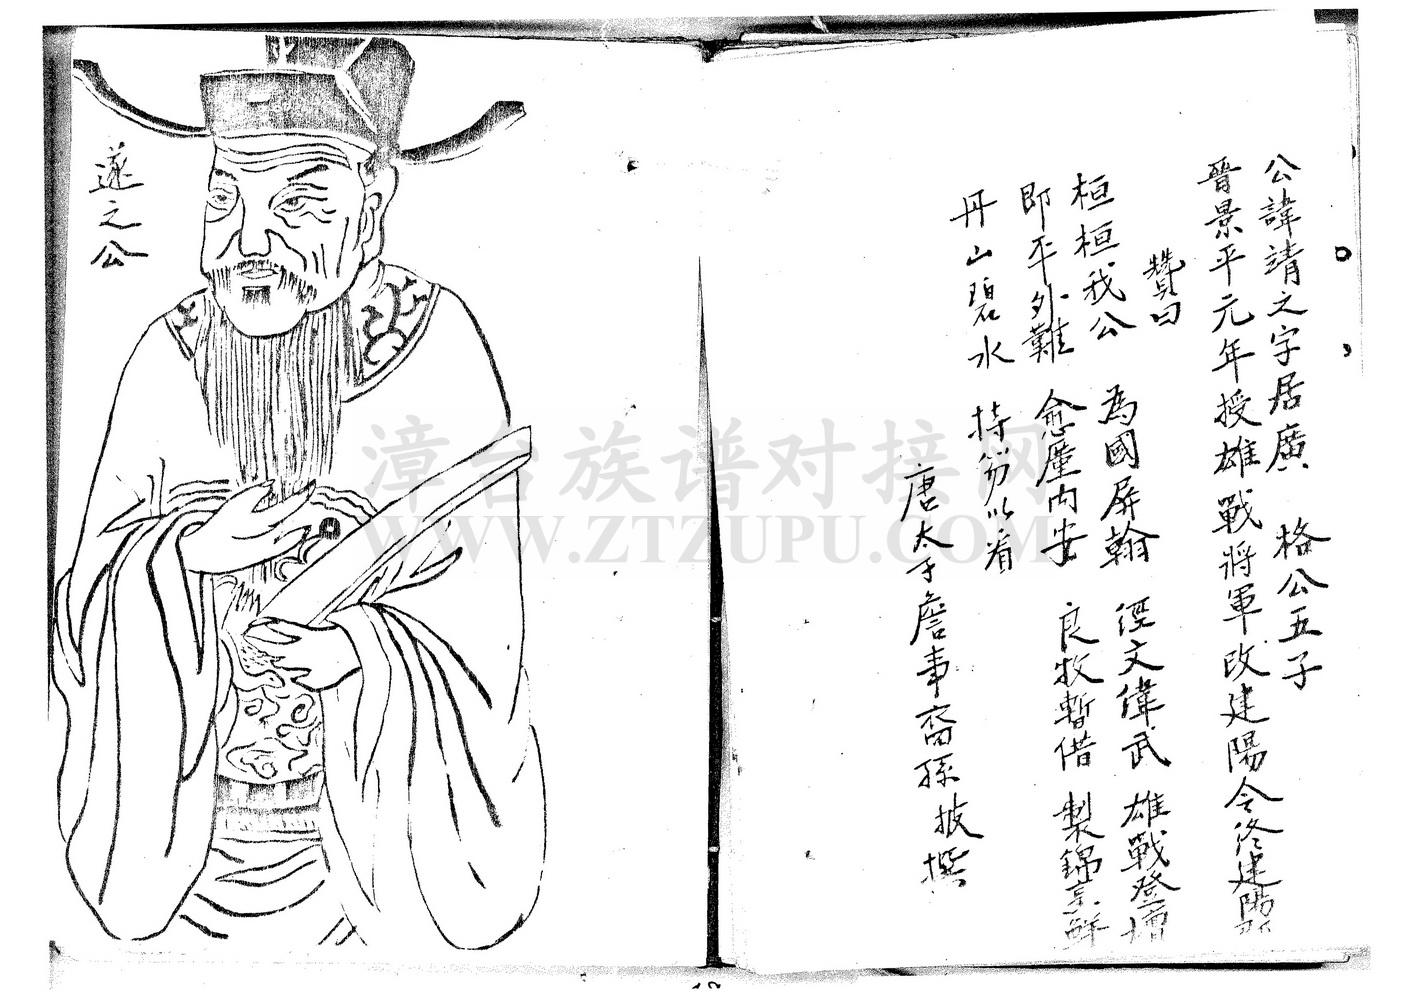 公諱靖之字居廣 格公五子
晉景平元年授雄戰將軍改建陽令終建陽
贊曰
桓桓我公 為國屏翰 經文偉武 雄戰登壇
即平外難 愈厪內安 良牧暫借 製錦烹鮮
丹山碧水 持笏以看
唐太子詹事裔孫披撰
遂之公
漳台族谱对接网
WWW.ZTZUPU.COM